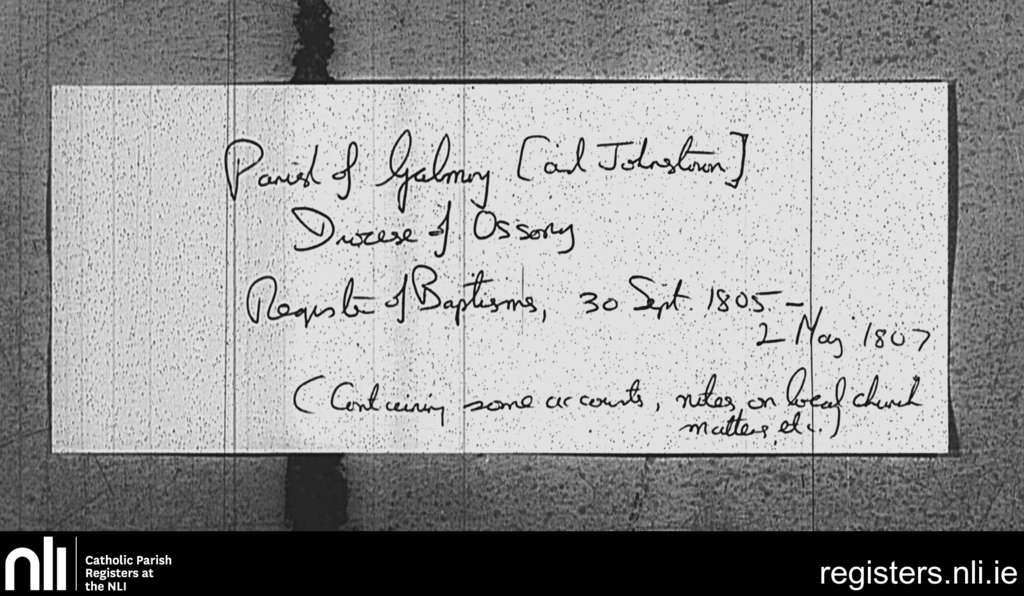 Parish of Galmoy [and Johnstown]
Diocese of Ossory
Register of Baptisms, 30 Sept. 1805 –
2 May 1807
(Containing some accounts, notes on local church
matters, etc.)
nli
Catholic Parish
Registers at
the NLI
registers.nli.ie